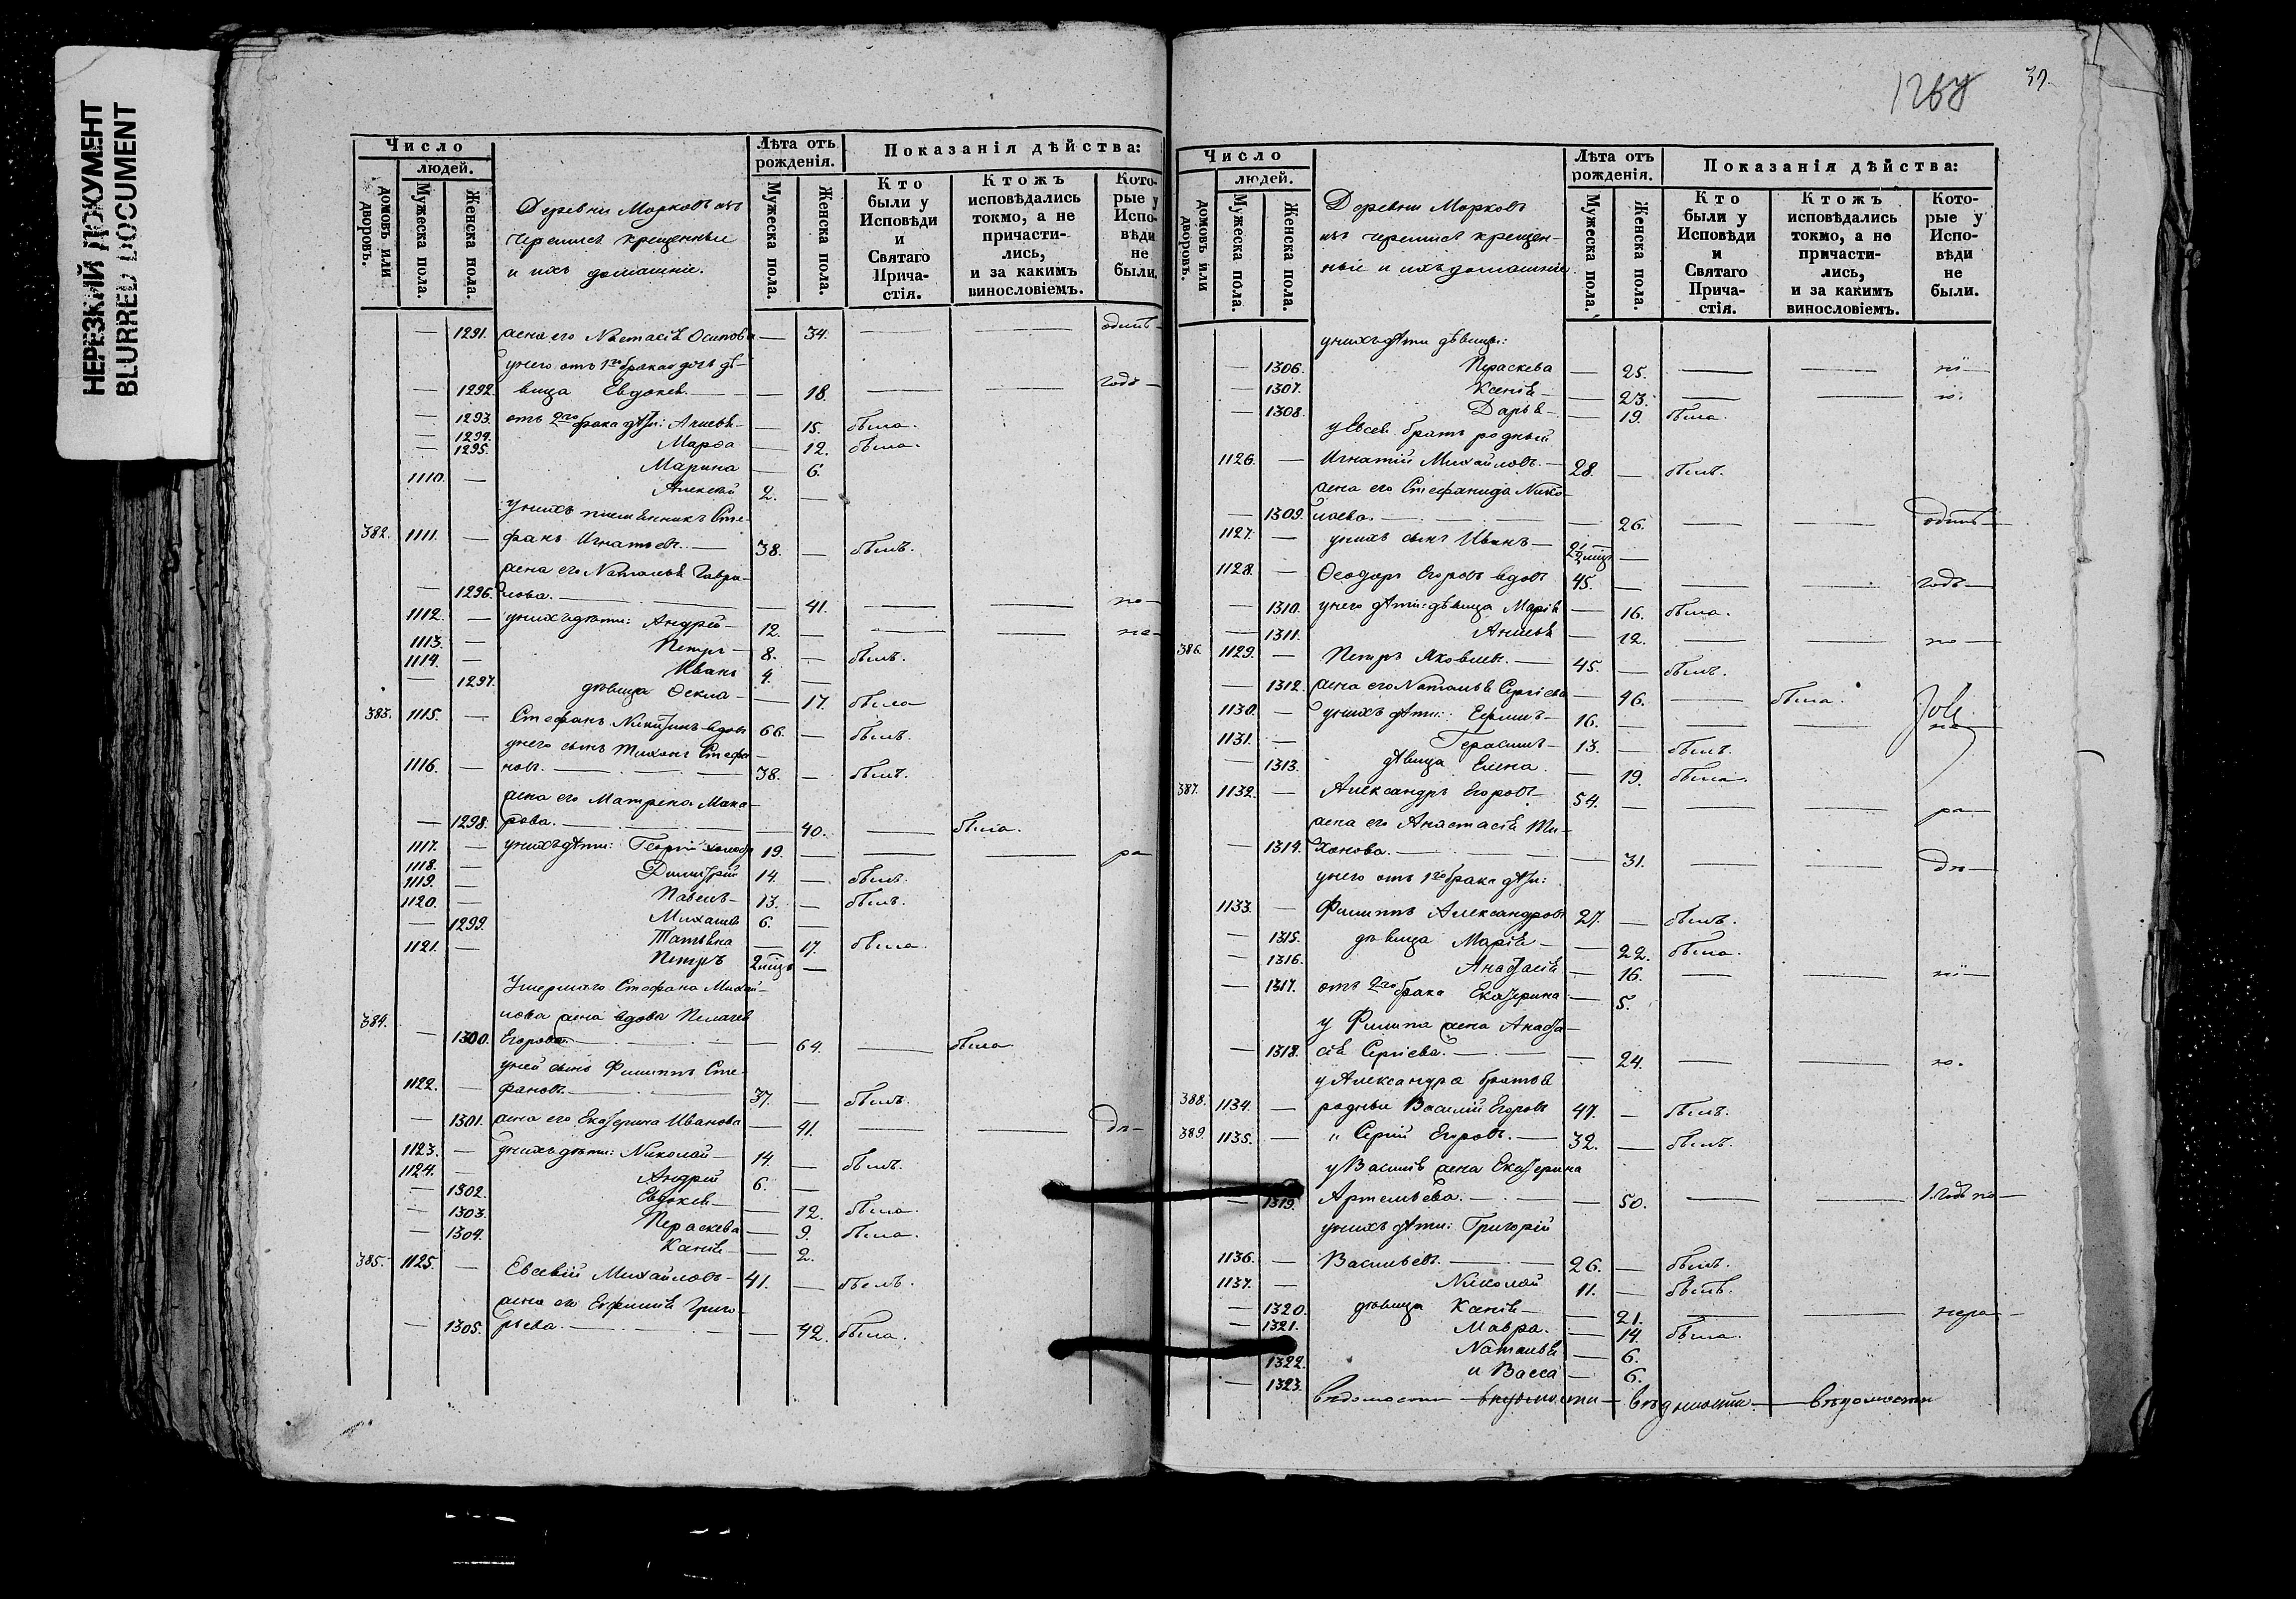 НЕРЕЗКИЙ ДОКУМЕНТ
BLURRED DOCUMENT
Число
людей.
домовъ или дворовъ.
Мужеска пола.
Женска пола.
Деревни Марковъ изъ
черемисъ крещенные
и ихъ домашніе.
Лѣта отъ рожденія.
Мужеска пола.
Женска пола.
Показанія дѣйства:
Кто были у Исповѣди и Святаго Прича-стія.
Ктожъ исповѣдались токмо, а не причасти-лись, и за какимъ винословіемъ.
Кото-рые у Испо-вѣди не были.
— 1291. жена его Настасія Осипова — 34. — —
у него отъ 1го брака дочь дѣ-
— 1292. вица Евдокія — 18. — — годъ —
— 1293. отъ 2го брака дѣти: — 15. была.
— 1294. Марѳа — 12. была.
— 1295. Марина — 6.
1110. — Алексѣй 2. —
у нихъ племянникъ Сте-
382. 1111. — фанъ Игнатьевъ — 38. — былъ.
жена его Наталья Гаври-
— 1296. лова. — 41. — — по —
1112. — у нихъ дѣти: Андрей — 12. — — —
1113. — Петръ — 8. — былъ.
1114. — Иванъ 4. —
— 1297. дѣвица Ѳекла — 17. была
383. 1115. — Стефанъ Никитинъ вдовъ 66. — былъ.
у него сынъ Тихонъ Стефа-
1116. — новъ. — 38. — былъ.
жена его Матрена Мака-
— 1298. рова. — 40. — была.
1117. — у нихъ дѣти: Георгій холостъ 19. — — — ра
1118. — Димитрій 14. — былъ.
1119. — Павелъ — 13. — былъ.
1120. — Михаилъ 6. —
— 1299. Татьяна — 17. была.
1121. — Петръ 2 мѣц —
Умершаго Стефана Михай-
384. лова жена вдова Пелагея
— 1300. Егорова. — 64. — была
у ней сынъ Филиппъ Сте-
1122. — фановъ. — 37. — былъ.
— 1301. жена его Екатерина Иванова — 41. — —
1123. — у нихъ дѣти: Николай — 14. — былъ.
1124. — Андрей 6. —
— 1302. Евдокія — 12. была.
— 1303. Параскева — 9. была.
— 1304. Ксенія — 2.
385. 1125. — Евсевій Михайловъ — 41. — былъ.
жена его Евфимія Григо-
— 1305. рьева. — 42. была.
39.
Число
людей.
домовъ или дворовъ.
Мужеска пола.
Женска пола.
Деревни Марковъ
изъ черемисъ крещен-
ные и ихъ домашніе
Лѣта отъ рожденія.
Мужеска пола.
Женска пола.
Показанія дѣйства:
Кто были у Исповѣди и Святаго Прича-стія.
Ктожъ исповѣдались токмо, а не причасти-лись, и за какимъ винословіемъ.
Кото-рые у Испо-вѣди не были.
у нихъ дѣти дѣвицы:
— 1306. Параскева — 25. — —
— 1307. Ксенія — 23. — —
— 1308. Дарья — 19. была.
у Евсевія братъ родный
1126. — Игнатій Михайловъ. — 28. — былъ.
жена его Стефанида Нико-
— 1309. лаева. — 26. — —
1127. — у нихъ сынъ Иванъ —
1128. — Ѳеодоръ Егоровъ вдовъ 45. — — — годъ —
— 1310. у него дѣти: дѣвица Марія — 16. была.
— 1311. — 12. — — по —
386. 1129. — Петръ Яковлевъ. — 45. — былъ.
— 1312. жена его Наталья Сергіева — 46. — была.
1130. — у нихъ дѣти: Ефимъ — 16. — — —
1131. — Герасимъ — 13. — былъ.
— 1313. дѣвица Елена. — 19. была.
387. 1132. — Александръ Егоровъ — 54. — — — ра —
жена его Анастасія Ти-
— 1314. хонова. — 31. — —
у него отъ 1го брака дѣти:
1133. — Филиппъ Александровъ 27. — былъ.
— 1315. дѣвица Марія — 22. была.
— 1316. Анастасія — 16. — —
— 1317. отъ 2го брака Екатерина — 5.
у Филиппа жена Анаста-
— 1318. сія Сергіева. — 24. — —
у Александра братья
388. 1134. — родные Василій Егоровъ 47. — былъ.
389. 1135. — „ Сергій Егоровъ. — 32. — былъ.
у Василія жена Екатерина
— 1319. Артемьева. — 50. — —
у нихъ дѣти: Григорій
1136. — Васильевъ. — 26. — былъ.
1137. — Николай 11. — былъ.
— 1320. дѣвица Ксенія — 21. — —
— 1321. Мавра. — 14. была.
1322. Наталья — 6.
— 1323. и Васса — 6.